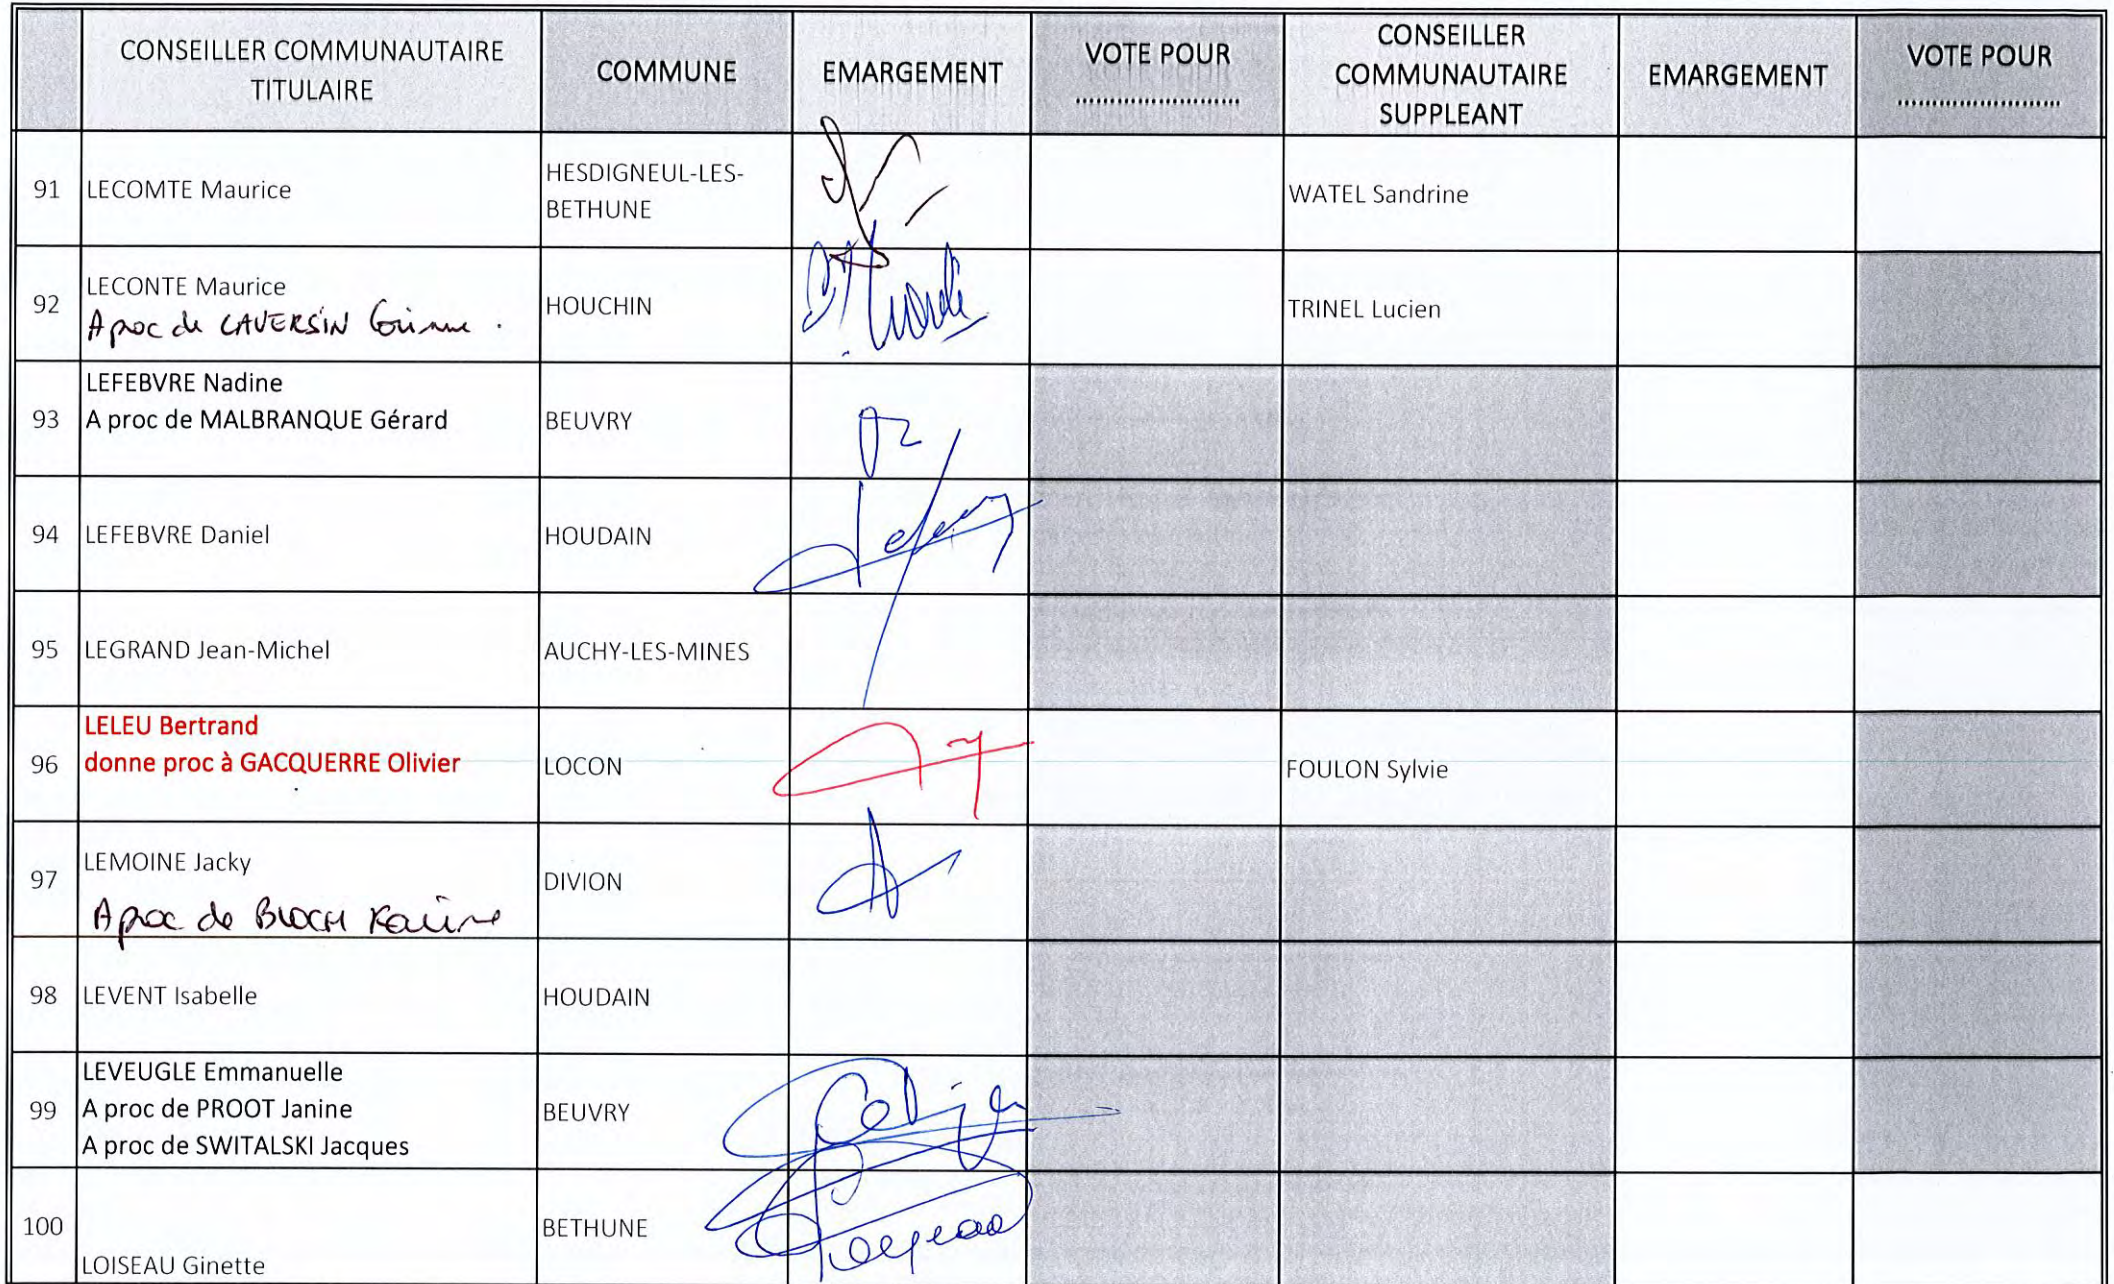 CONSEILLER COMMUNAUTAIRE
TITULAIRE
COMMUNE
EMARGEMENT
VOTE POUR
........................
CONSEILLER
COMMUNAUTAIRE
SUPPLEANT
EMARGEMENT
VOTE POUR
........................
91
LECOMTE Maurice
HESDIGNEUL-LES-
BETHUNE
WATEL Sandrine
92
LECONTE Maurice
A proc de CAVERSIN
HOUCHIN
TRINEL Lucien
93
LEFEBVRE Nadine
A proc de MALBRANQUE Gérard
BEUVRY
94
LEFEBVRE Daniel
HOUDAIN
95
LEGRAND Jean-Michel
AUCHY-LES-MINES
96
LELEU Bertrand
donne proc à GACQUERRE Olivier
LOCON
FOULON Sylvie
97
LEMOINE Jacky
A proc de BLOCH Karine
DIVION
98
LEVENT Isabelle
HOUDAIN
99
LEVEUGLE Emmanuelle
A proc de PROOT Janine
A proc de SWITALSKI Jacques
BEUVRY
100
LOISEAU Ginette
BETHUNE